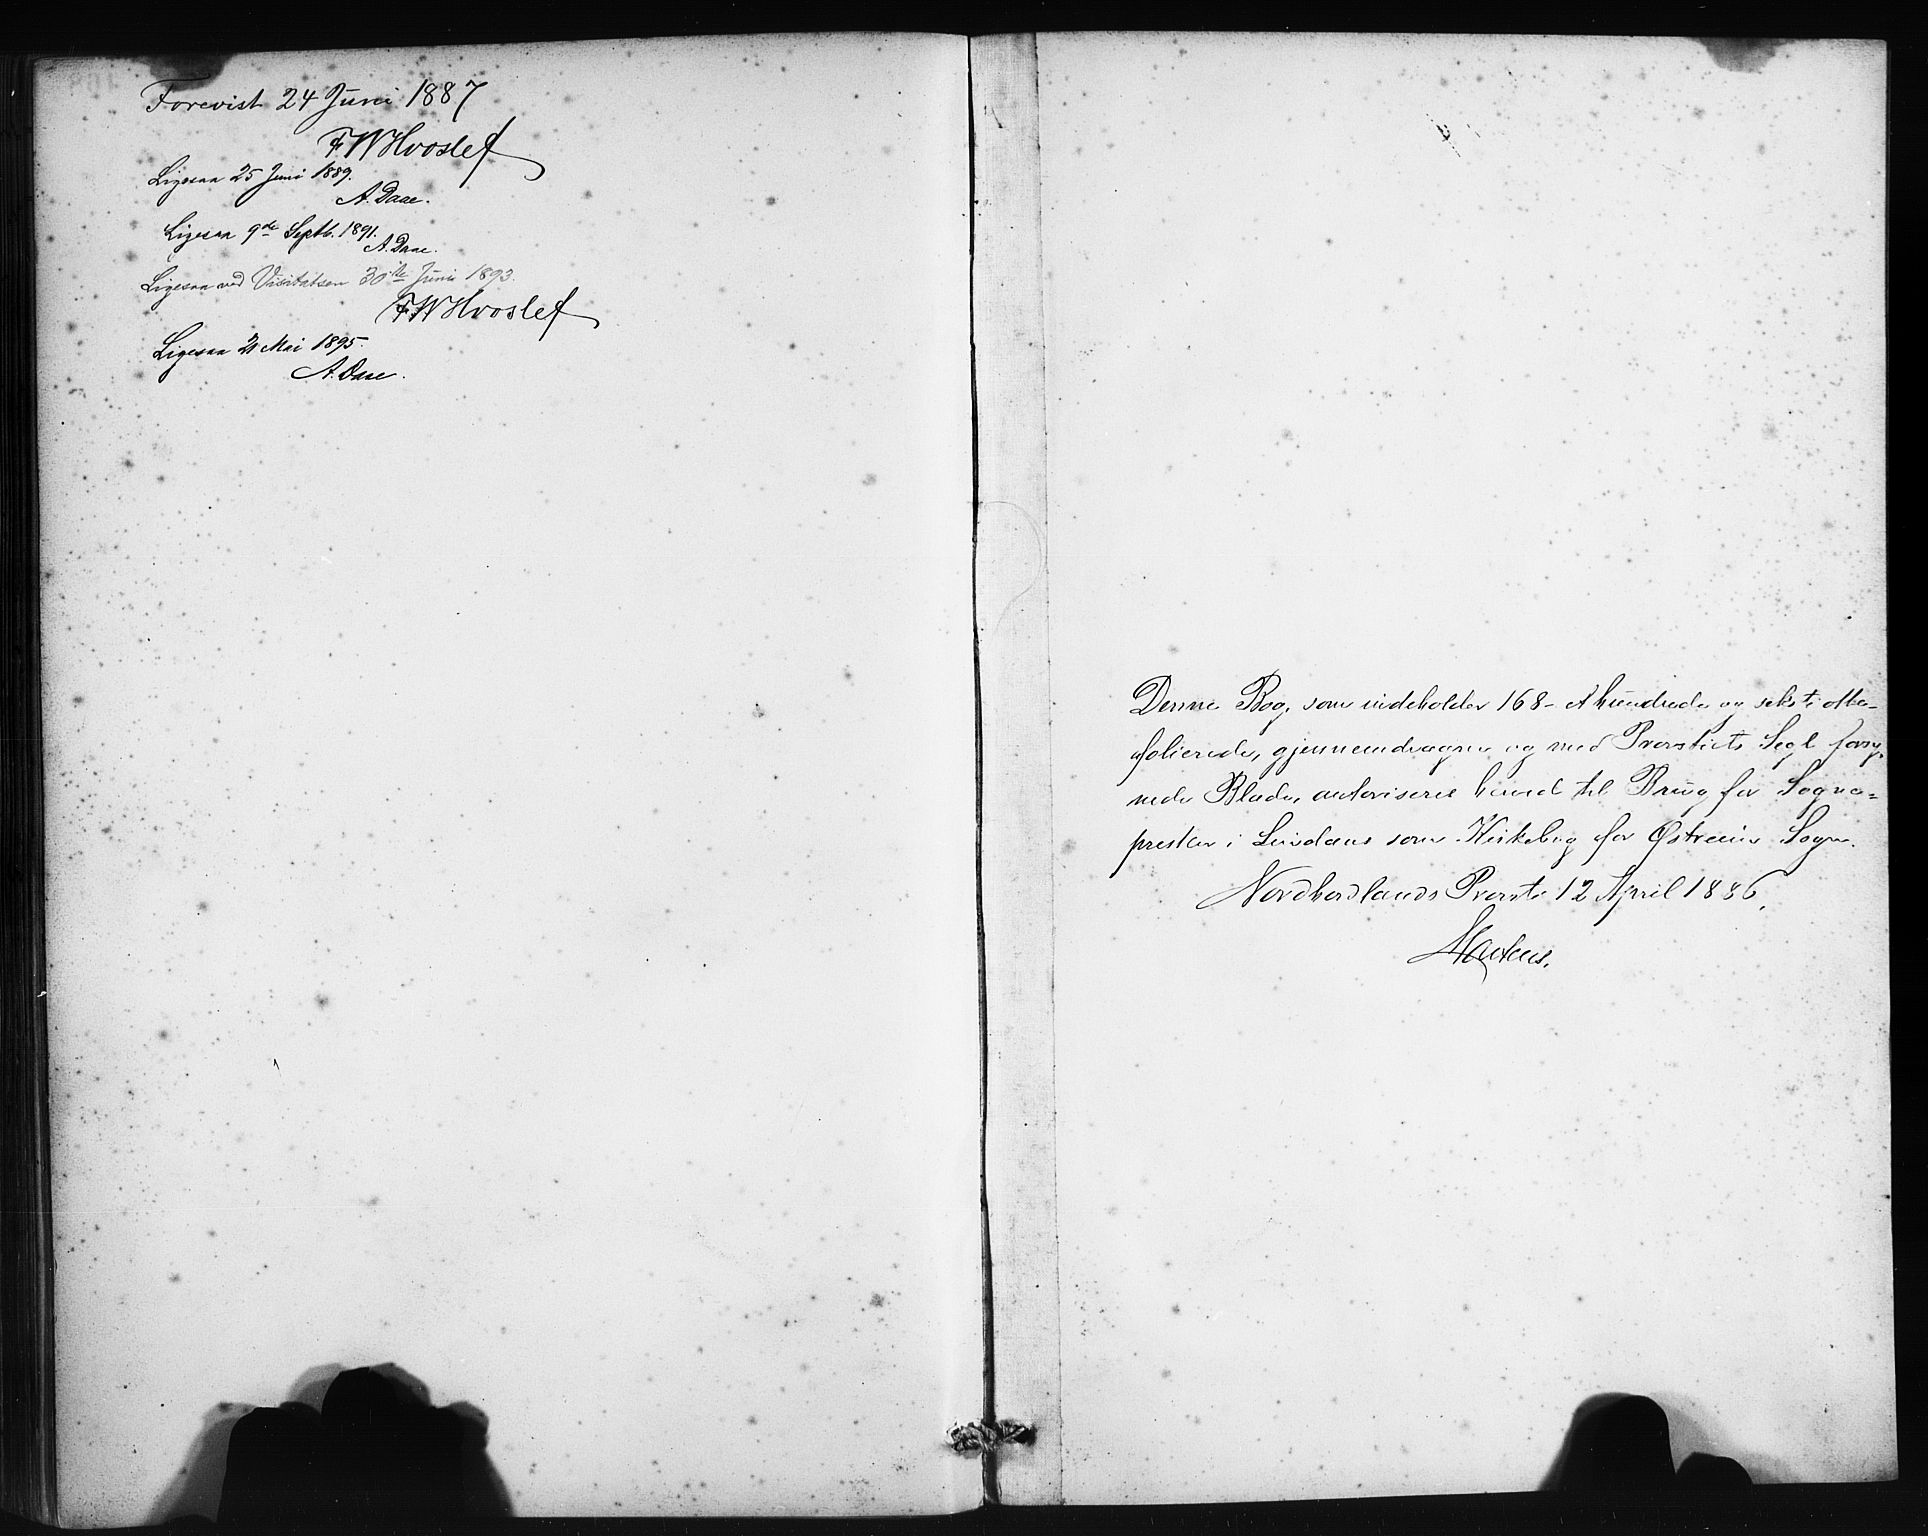 Forevist 24 Juni 1887
FW Hvoslef
Ligesaa 25 Juni 1889.
A. Daae.
Ligesaa 9de Septb. 1891.
A. Daae.
Ligesaa ved Visitatsen 30te Juni 1893.
FW Hvoslef
Ligesaa 21 Mai 1895.
A. Daae.
Denne Bog, som indeholder 168 - et hundrede og seksti otte -
folierede, gjennemdragne og med Provstiets Segl forsy-
nede Blade, autoriseres herved til Brug for Sogne=
presten i Lindaas som Kirkebog for Østreim Sogn.
Nordhordlands Provsti 12 April 1886.